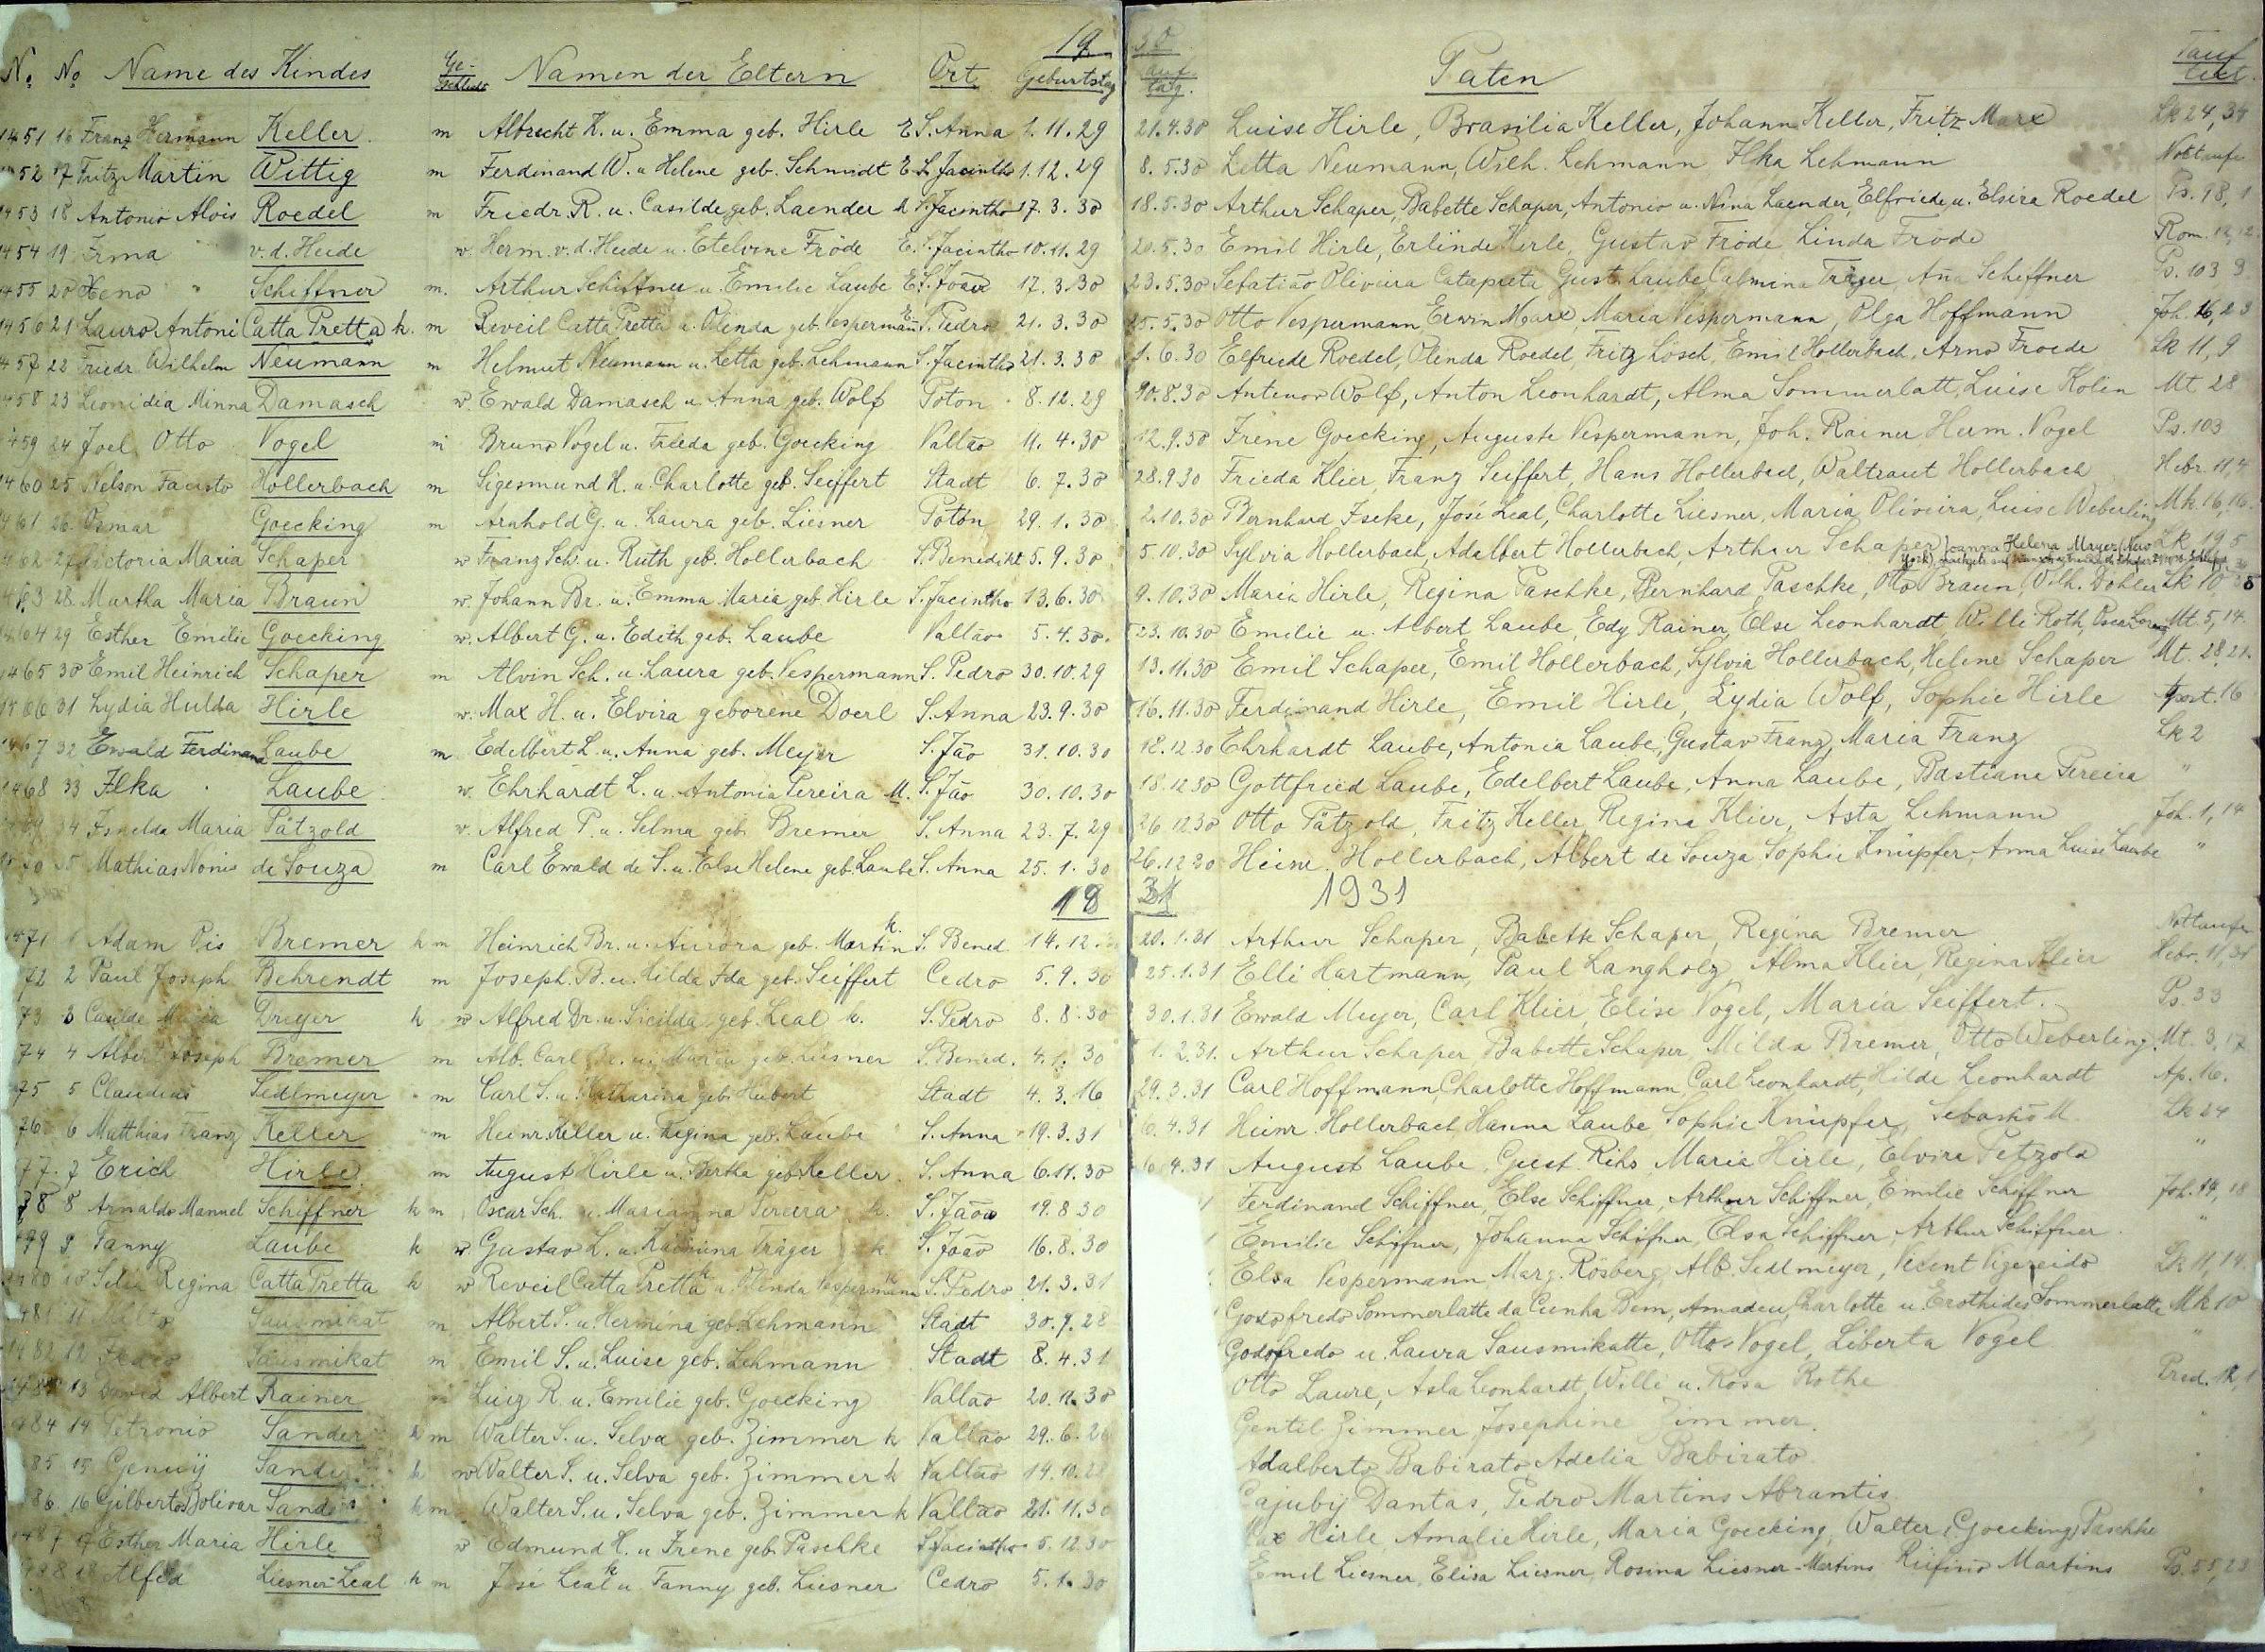 19
No No Name des Kindes Ge-schlecht Namen der Eltern Ort Geburtstag
1451 16 Franz Hermann Keller m Albrecht K. u. Emma geb. Hirle E S. Anna 1.11.29
1452 17 Fritz Martin Wittig m Ferdinand W. u Helene geb. Schmidt E. S. Jacintho 1.12.29
1453 18 Antonio Alois Roedel m Friedr. R. u. Casilde geb. Laender S. Jacintho 17.3.30
1454 19 Irma " v.d. Heide w. Herm. v. d. Heide u. Etelvine Fröde E. S. Jacintho 10.11.29
1455 20 " Schiffner m. Arthur Schiffner u. Emilie Laube E. S. João 17.3.30
145 21 Lauro Antoni Catta Pretta k. m Reveil Catta Pretta u. Olinda geb. Vespermann S. Pedro 21.3.30
457 22 Friedr. Wilhelm Neumann m Helmut Neumann u. Letta geb. Lehmann S. Jacintho 21.3.30
458 23 Leonidia Minna Damasch w. Ewald Damasch u. Anna geb. Wolf Poton 8.12.29
459 24 Joel Otto Vogel m Bruno Vogel u. Frieda geb. Goecking Vallão 11.4.30
1460 25 Nelson Fausto Hollerbach m Sigesmund H. u. Charlotte geb. Seiffert Stadt 6.7.30
461 26 Osmar Goecking m Arnhold G. u. Laura geb. Liesner Poton 29.1.30
462 27 Victoria Maria Schaper w Franz Sch. u. Ruth geb. Hollerbach S. Benedikt 5.9.30
463 28 Martha Maria Braun w. Johann Br. u. Emma Maria geb. Hirle S. Jacintho 13.6.30
1464 29 Esther Emilie Goecking w. Albert G. u. Edith geb. Laube Vallão 5.4.30.
1465 30 Emil Heinrich Schaper m Alvin Sch. u. Laura geb. Vespermann S. Pedro 30.10.29
1466 31 Lydia Hulda Hirle w. Max H. u. Elvira geborene Doerl S. Anna 23.9.30
1467 32 Ewald Ferdinand Laube m Edelbert L. u. Anna geb. Meyer S. Jão 31.10.30
1468 33 Ilka Laube w. Ehrhardt L. u. Antonia Pereira M. S. Jão 30.10.30
34 Isnelda Maria Pätzold w. Alfred P. u. Selma geb. Bremer S. Anna 23.7.29
35 Mathias Nonis de Souza m Carl Ewald de S. u. Else Helene geb. Laube S. Anna 25.1.30
19
1471 1 Adam Pis Bremer k m Heinrich Br. u. Aurora geb. Martin k. S. Bened. 14.12
72 2 Paul Joseph Behrendt m Joseph. B. u. Hilda Ida geb. Seiffert Cedro 5.9.30
73 3 Maria Dreyer k w Alfred Dr. u. Sicilda geb. Leal k. S. Pedro 8.8.30
74 4 Albert Joseph Bremer m Alb. Carl Br. u. Maria geb. Liesner S. Bened. 4.1.30
75 5 Claudius Sedlmeyer m Carl S. u. Katharina geb. Hubert Stadt 4.3.16
76 6 Matthias Franz Keller m Heinr. Keller u. Regina geb. Laube S. Anna 19.3.31
77. 7 Erich Hirle m August Hirle u. Bertha geb. Keller S. Anna 6.11.30
78 8 Arnaldo Manuel Schiffner k m Oscar Sch. u. Marianna Pereira k. S. João 19.8.30
9 Fanny Laube k w Gustav L. u. Träger k S. João 16.8.30
1480 10 Regina Catta Pretta k w Reveil Catta Pretta k u Olinda Vespermann S. Pedro 21.3.31
481 11 Sausmikat m Albert S. u. Hermina geb. Lehmann Stadt 30.7.28
1482 12 Sausmikat m Emil S. u. Luise geb. Lehmann Stadt 8.4.31
13 David Albert Rainer Luiz R. u. Emilie geb. Goecking Vallão 20.11.30
484 14 Petronio Sander k m Walter S. u. Selva geb. Zimmer k Vallão 29.6.26
85 15 Sander k w Walter S. u. Selva geb. Zimmer k Vallão 14.10.28
86. 16 Gilberto Bolivar Sander k m Walter S. u. Selva geb. Zimmer k Vallão 21.11.30
1487 17 Esther Maria Hirle w Edmund H. u Irene geb. Paschke S. Jacintho 5.12.30
18 Liesner-Leal k m José Leal k u. Fanny geb. Liesner Cedro 5.1.30
30
Tauf tag. Paten Tauf text.
21.4.30 Luise Hirle, Brasilia Keller, Johann Keller, Fritz Marx Lk 24, 34
8.5.30 Letta Neumann, Wilh. Lehmann Ilka Lehmann Nottaufe
18.5.30 Arthur Schaper, Babette Schaper, Antonio u. Nina Laender, Elfriede u. Elsira Roedel Ps. 98, 1
20.5.30 Emil Hirle, Erlinde Hirle, Gustav Fröde Linda Fröde Rom. 12, 12.
23.5.30 Sebatião Oliveira Catapreta Gust. Laube Träger, Ana Schiffner Ps. 103
25.5.30 Otto Vespermann, Erwin Marx, Maria Vespermann, Olga Hoffmann Joh. 16, 23
1.6.30 Elfriede Roedel, Olinda Roedel, Fritz Lösch, Emil Hollerbach, Arno Froede Lk 11, 9
10.8.30 Antenor Wolf, Anton Leonhardt, Alma Sommerlatt, Luise Kolin Mt. 28
12.9.30 Irene Goecking, Auguste Vespermann, Joh. Rainer Herm. Vogel Ps. 103
28.9.30 Frieda Klier, Franz Seiffert, Hans Hollerbach, Waltraut Hollerbach Hebr. 11, 4
2.10.30 Bernhard Iseke, José Leal, Charlotte Liesner, Maria Oliveira, Luise Weberling Mk 16, 16.
5.10.30 Sylvia Hollerbach, Adalbert Hollerbach, Arthur Schaper Joanna Helena Mayer Lk 19, 5
9.10.30 Maria Hirle, Regina Paschke, Bernhard Paschke, Otto Braun, Wilh. Dohler Lk 10,
23.10.30 Emilie u. Albert Laube, Edy Rainer, Else Leonhardt, Willi Roth, Mt. 5, 14.
13.11.30 Emil Schaper, Emil Hollerbach, Sylvia Hollerbach, Helene Schaper Mt. 28, 21.
16.11.30 Ferdinand Hirle, Emil Hirle, Lydia Wolf, Sophie Hirle Apost. 16
18.12.30 Ehrhardt Laube, Antonia Laube, Gustav Franz, Maria Franz Lk 2
18.12.30 Gottfried Laube, Edelbert Laube, Anna Laube, Bastiana Pereira "
26.12.30 Otto Pätzold, Fritz Keller, Regina Klier, Asta Lehmann Joh. 1, 14
26.12.30 Heinr. Hollerbach, Albert de Souza, Sophie Knüpfer, Anna Luise Laube "
31 1931
20.1.31 Arthur Schaper, Babette Schaper, Regina Bremer Nottaufe
25.1.31 Elli Hartmann, Paul Langholz, Alma Klier, Regina Klier Hebr. 11, 31
30.1.31 Ewald Meyer, Carl Klier, Elise Vogel, Maria Seiffert. Ps. 33
1.2.31. Arthur Schaper, Babette Schaper, Milda Bremer, Otto Weberling. Mt. 3, 17
29.3.31 Carl Hoffmann, Charlotte Hoffmann, Carl Leonhardt, Hilde Leonhardt Ap. 16.
6.4.31 Heinr. Hollerbach, Hanna Laube Sophie Knüpfer, M. Lk 24
6.4.31 August Laube, Gust. Rihs, Maria Hirle, Elvira Petzold "
Ferdinand Schiffner, Else Schiffner, Arthur Schiffner, Emilie Schiffner Joh. 14, 18
Emilie Schiffner, Johanna Schiffner, Elsa Schiffner, Arthur Schiffner. "
Elsa Vespermann, Marg. Rösberg, Alb. Sedlmeyer, Lk 11, 14.
Godofredo Sommerlatte da Cunha Bem, Amadeu, Charlotte u. Erothides Sommerlatte Mk 10
Godofredo u. Laura Sausmikatte, Otto Vogel, Liberta Vogel "
Otto Laure, Asla Leonhardt, Willi u. Rosa Rothe Pred. 12, 1
Gentil Zimmer Josephine Zimmer. "
Adalberto Babirato Adelia Babirato "
Cajubij Dantas, Pedro Martins Abrantis. "
Max Hirle, Amalie Hirle, Maria Goecking, Walter Goecking, Paschke
Emil Liesner, Elisa Liesner, Rosina Liesner-Martins Rufino Martins Ps. 55, 23